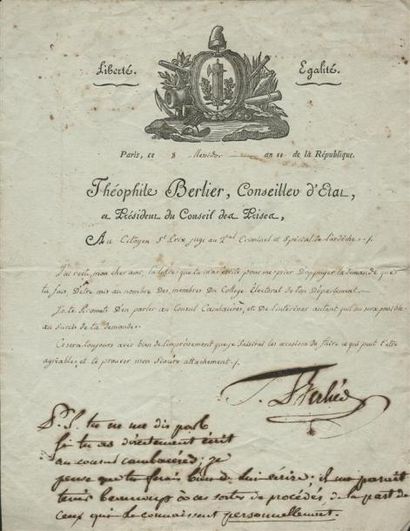 Liberté. Egalité.
Paris, ce 8 Messidor an 11 de la République.
Théophile Berlier, Conseiller d'Etat,
et Président du Conseil des Prises,
Au Citoyen St Prix juge au Criminel et Spécial de l'ardèche
J'ai reçu, mon cher ami, la lettre que tu m'as écrite pour me prier d'appuyer la demande que
tu fais, d'être mis au nombre des membres du Collège électoral de ton Département.
Je te promets d'en parler au Consul Cambacérès, et de l'intéresser autant qu'il me sera possible
au succès de ta demande.
Ce sera toujours avec bien de l'empressement que je saisirai les occasions de faire ce qui peut t'être
agréable, et te prouver mon sincère attachement.
T. Berlier
P.S. tu ne me dis pas
si tu as directement écrit
au consul cambacérès; je
pense que tu ferais bien de lui écrire; il me parait
tenir beaucoup à ces sortes de procédés de la part de
ceux qui le connaissent personnellement.